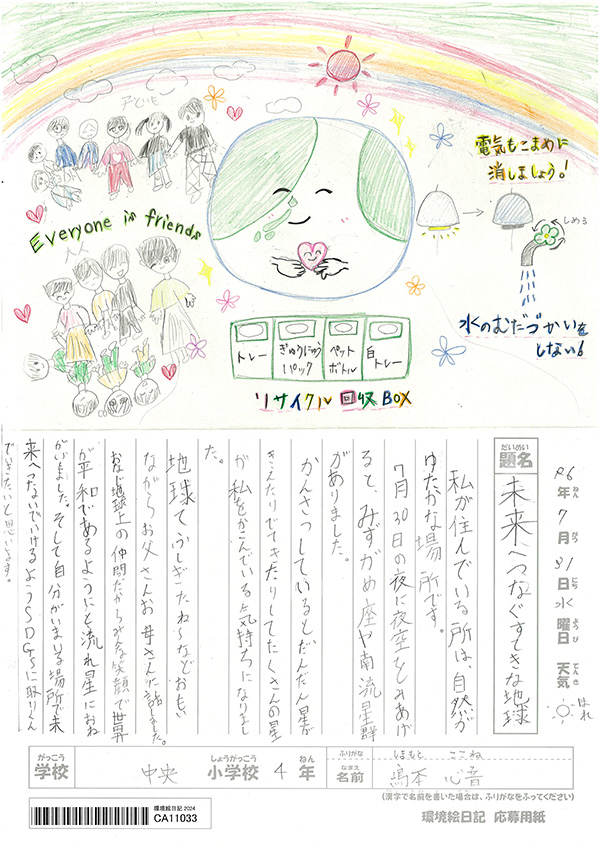 子ども
Everyone is friends
電気もこまめに
消しましょう!
しめる
水のむだづかいを
しない!
トレー
ぎゅうにゅう
パック
ペット
ボトル
白
トレー
リサイクル回収BOX
R6年7月31日水曜日 天気 はれ
ねん がつ にち ようび てんき
だいめい
題名
未来へつなぐすてきな地球
私が住んでいる所は、自然が
ゆたかな場所です。
7月30日の夜に夜空をみあげ
ると、みずがめ座や南流星群
がありました。
かんさつしているとだんだん星が
きえたりでてきたりしてたくさんの星
が私をかこんでいる気持ちになりまし
た。
地球てふしぎだね〜などおもい
ながらお父さんお母さんと話しました。
おなじ地球上の仲間だからみんな笑顔で世界
が平和であるようにと流れ星におね
がいました。そして自分がいまいる場所で未
来へつないでいけるようSDGSに取りくん
でいきたいと思います。
がっこう
学校
中央
しょうがっこう
小学校
4
ねん
年
ふりがな
しまもと ここね
なまえ
名前
島本 心音
(漢字で名前を書いた場合は、ふりがなをふってください)
環境絵日記 2024
CA11033
環境絵日記 応募用紙